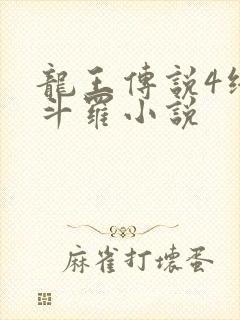 龍王傳說4
斗羅小說
麻雀打壞蛋